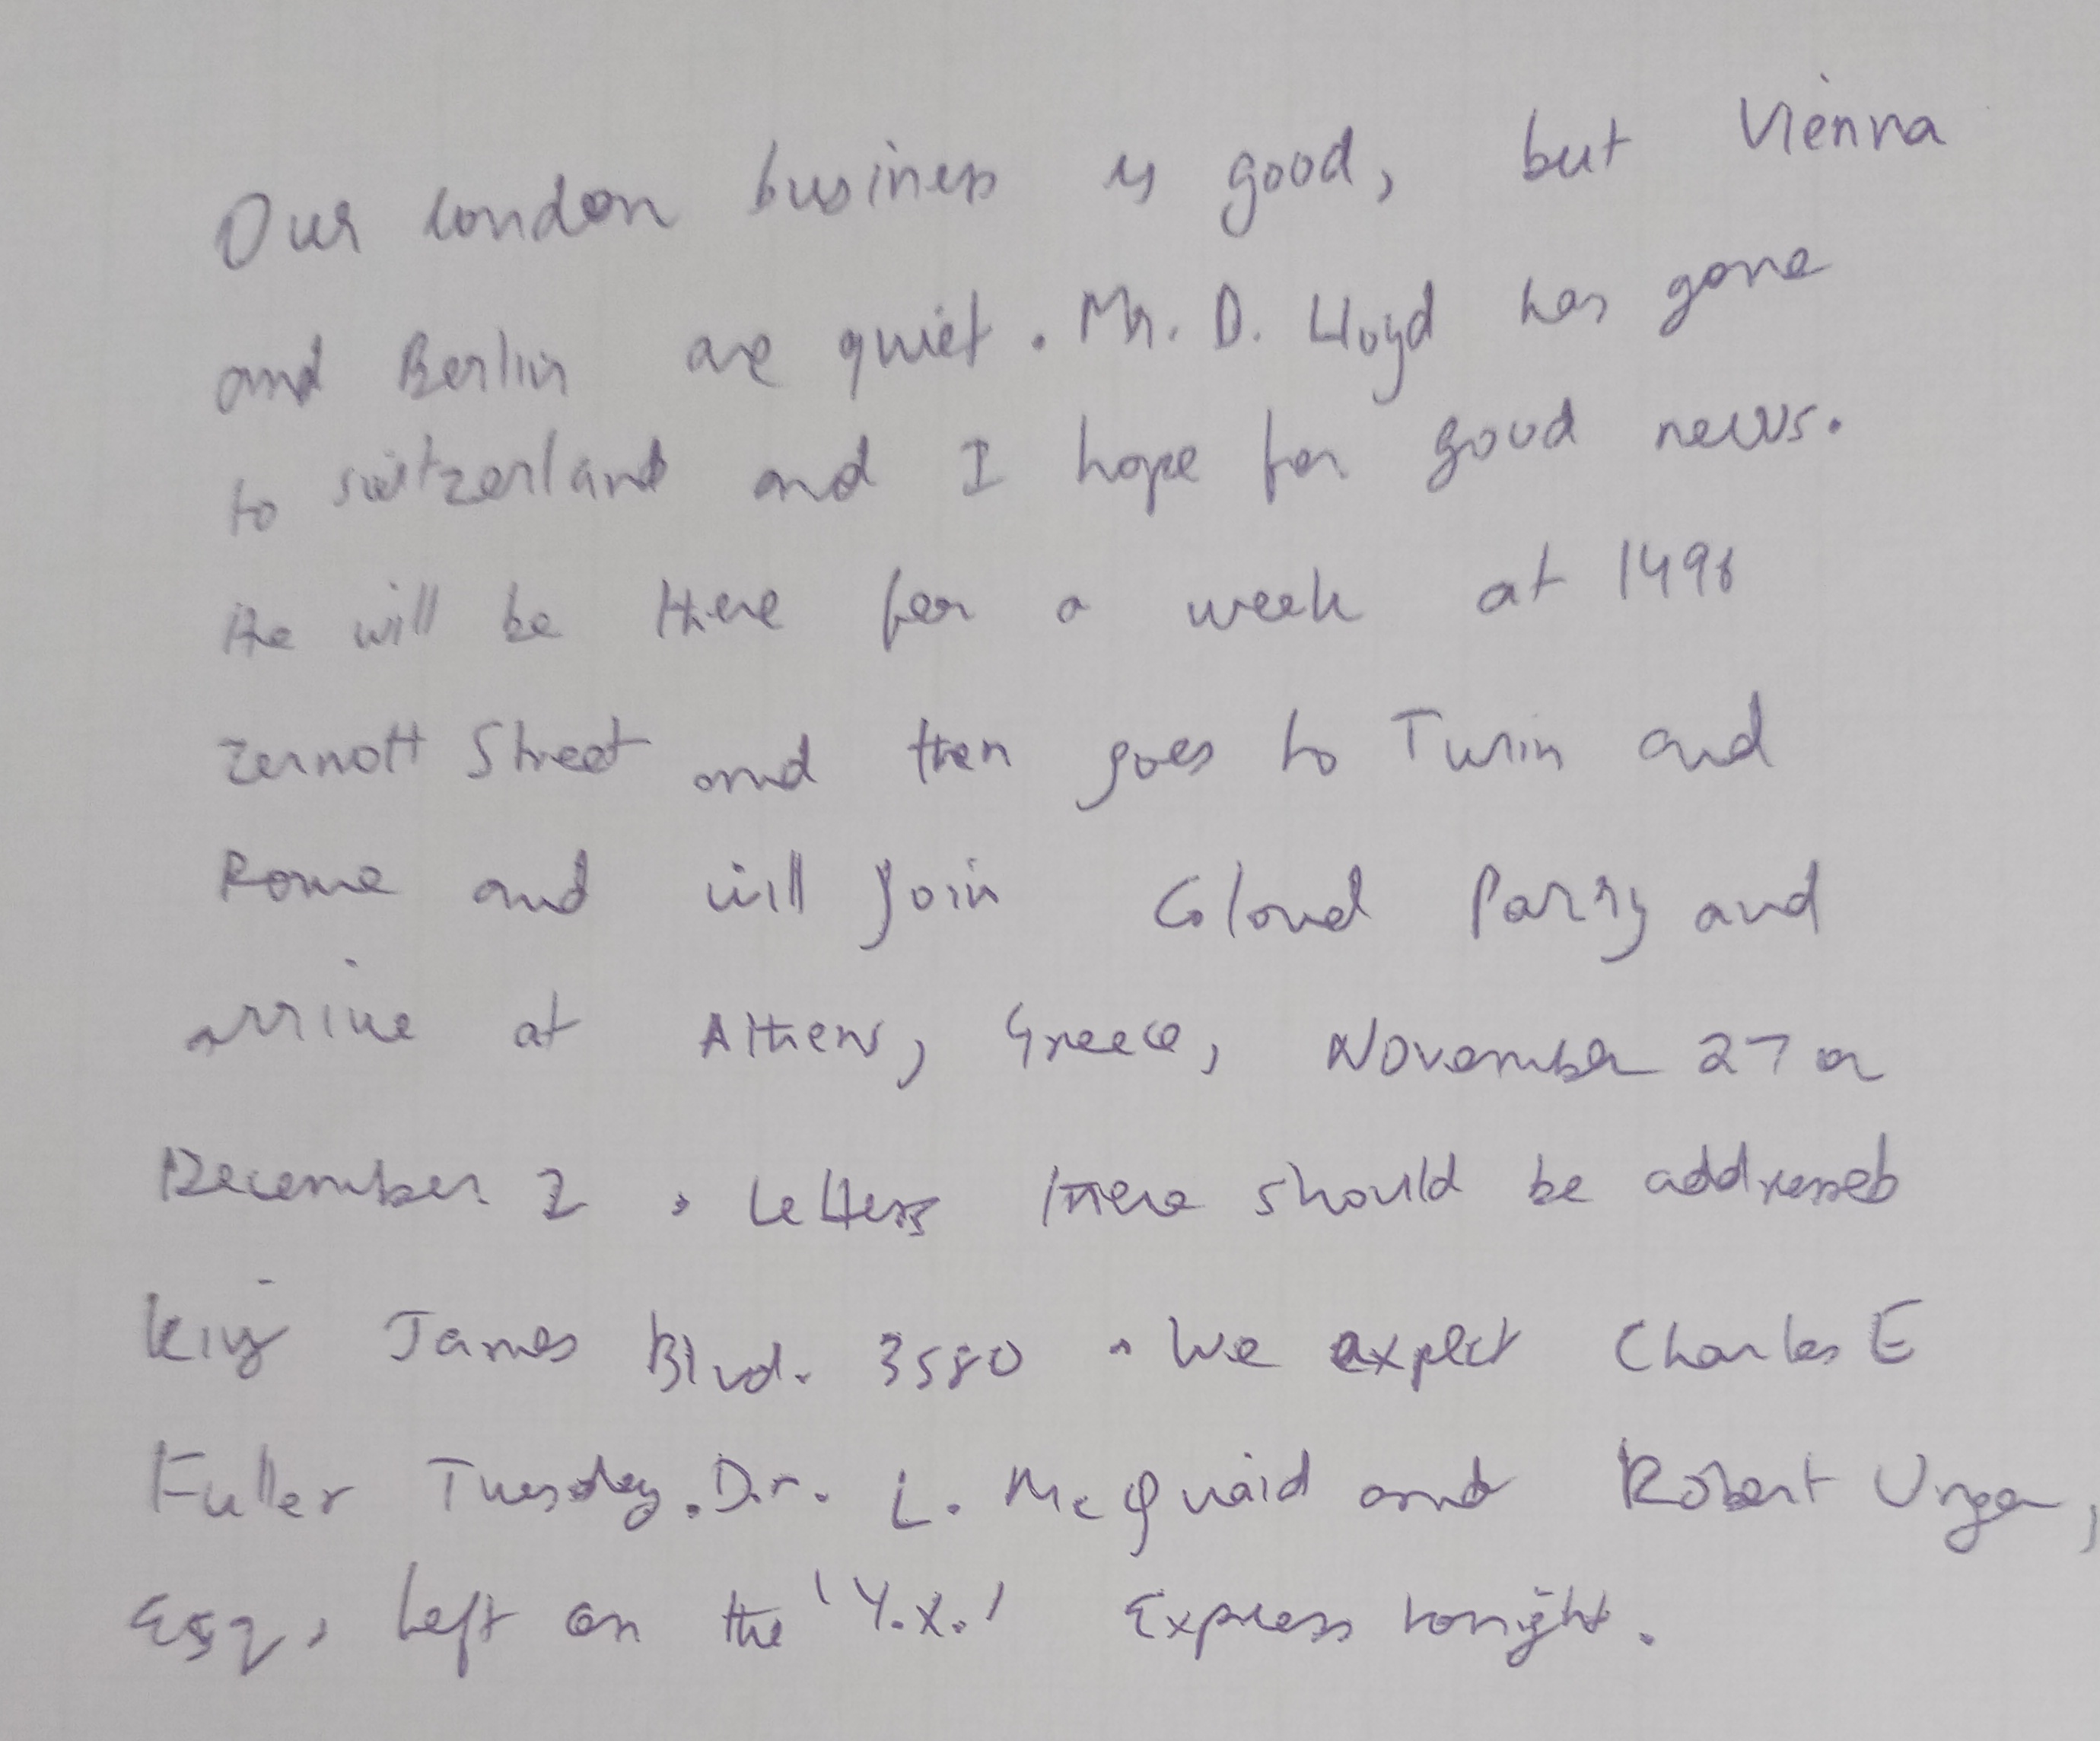 Our london business is good, but Vienna
and Berlin are quiet. Mr. D. Lloyd has gone
to switzerland and I hope for good news.
He will be there for a week at 1496
Zermott Street and then goes to Turin and
Rome and will join Colonel Parry and
arrive at Athens, Greece, November 27 or
December 2. Letters there should be addressed
King James Blvd. 3580. We expect Charles E
Fuller Tuesday. Dr. L. McQuaid and Robert Unger,
Esq, left on the 'Y.X.' Express tonight.